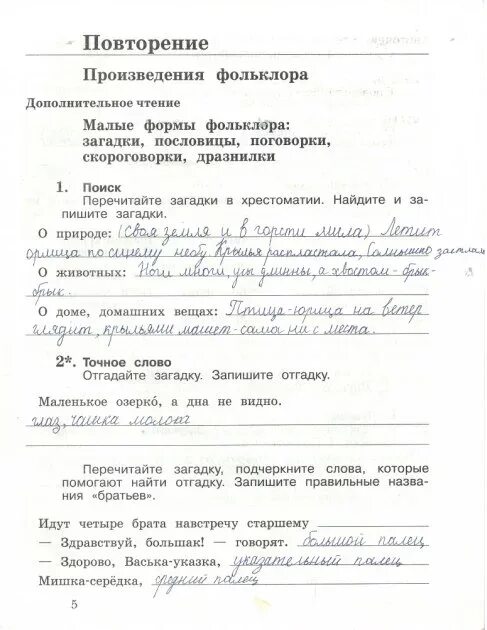 Повторение
Произведения фольклора
Дополнительное чтение
Малые формы фольклора:
загадки, пословицы, поговорки,
скороговорки, дразнилки
1. Поиск
Перечитайте загадки в хрестоматии. Найдите и за-
пишите загадки.
О природе: (Своя земля и в горсти мила) Летит
орлица по синему небу Крылья распластала, Солнышко застлала
О животных: Ноги многи, усы длинны, а хвостом - брык-
брык.
О доме, домашних вещах: Птица-юрица на ветер
глядит, крыльями машет - сама ни с места.
2*. Точное слово
Отгадайте загадку. Запишите отгадку.
Маленькое озеркó, а дна не видно.
глаз, чашка молока
Перечитайте загадку, подчеркните слова, которые
помогают найти отгадку. Запишите правильные назва-
ния «братьев».
Идут четыре брата навстречу старшему
— Здравствуй, большак! — говорят. большой палец
— Здорово, Васька-указка, указательный палец
Мишка-серёдка, средний палец
5